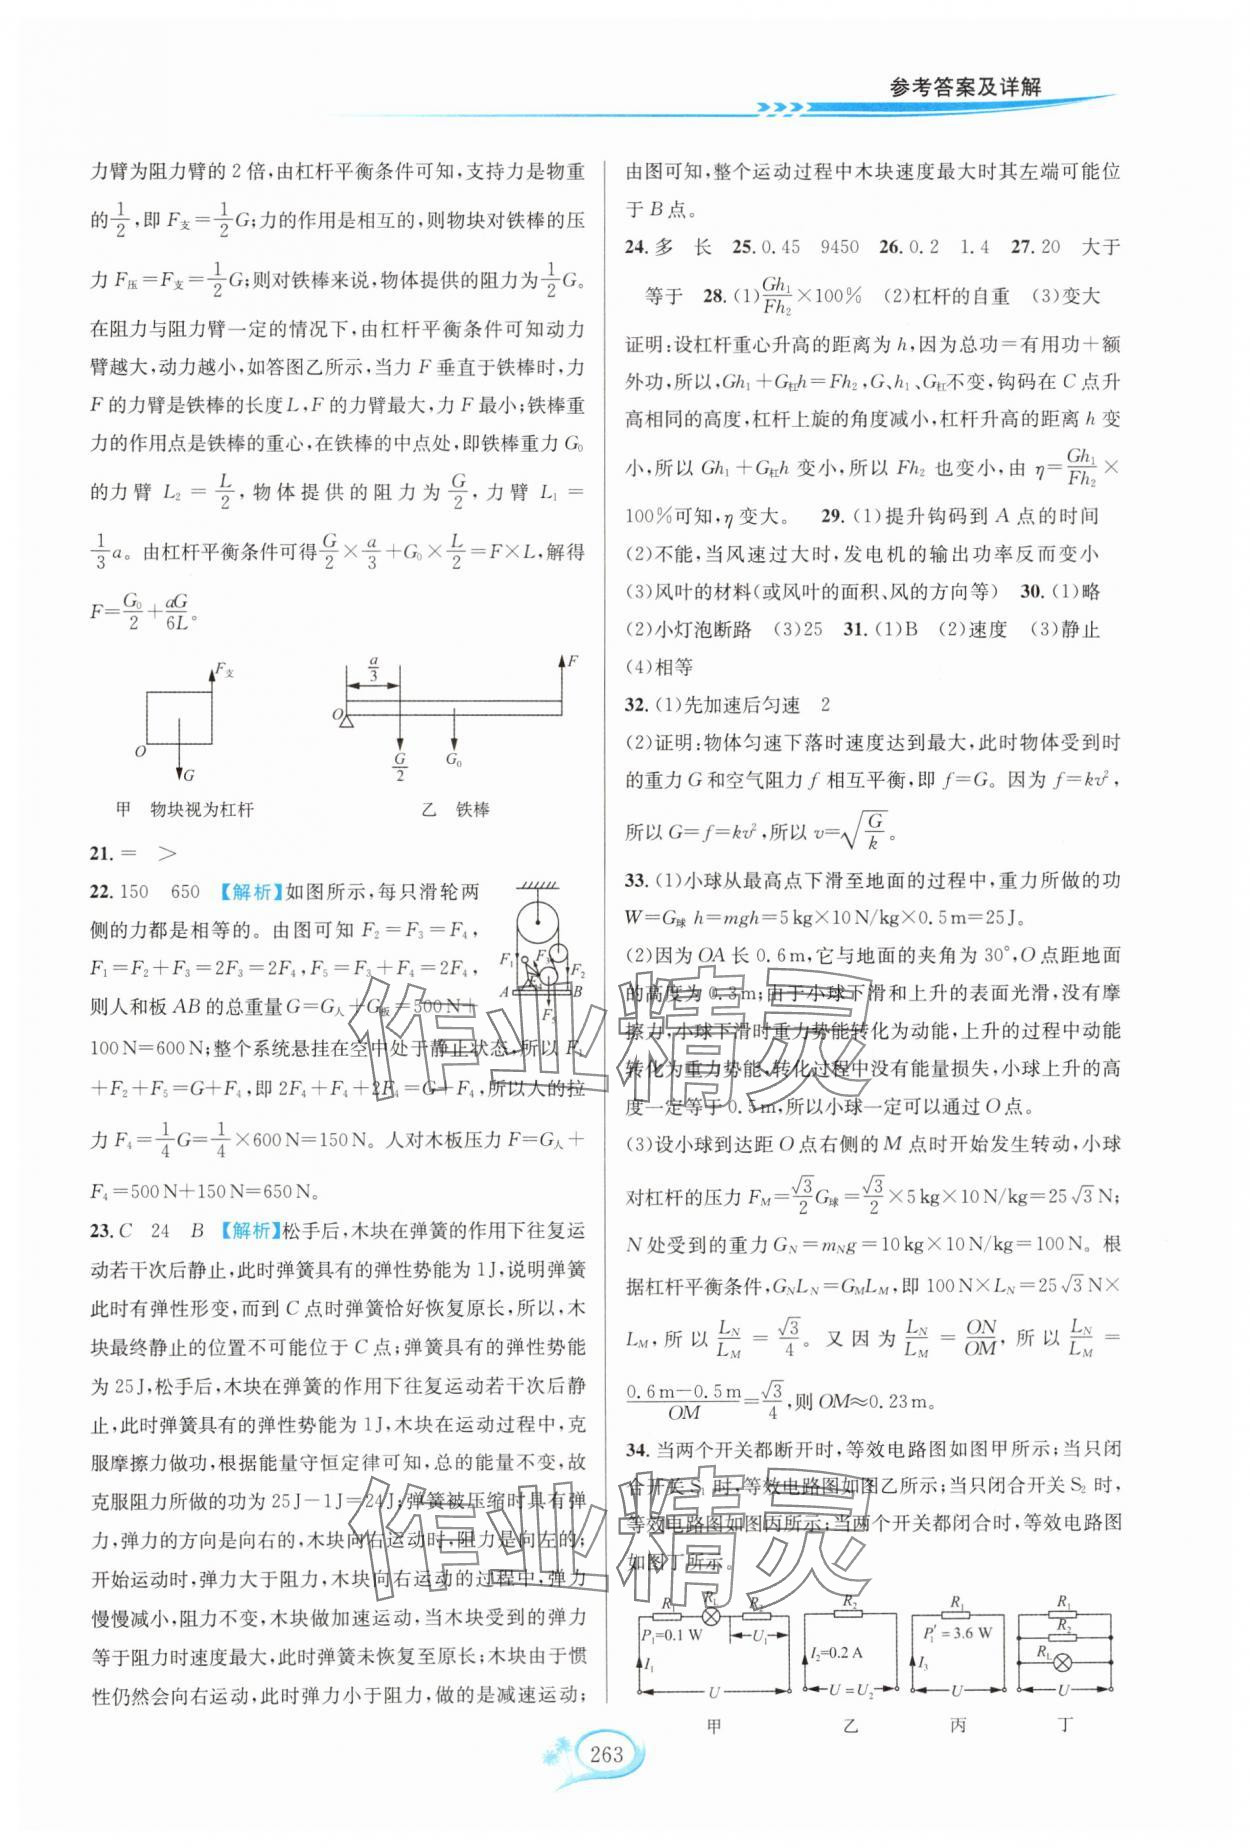 参考答案及详解
力臂为阻力臂的2倍,由杠杆平衡条件可知,支持力是物重
的1/2,即F支=1/2G;力的作用是相互的,则物块对铁棒的压
力F压=F支=1/2G;则对铁棒来说,物体提供的阻力为1/2G。
在阻力与阻力臂一定的情况下,由杠杆平衡条件可知动力
臂越大,动力越小,如答图乙所示,当力F垂直于铁棒时,力
F的力臂是铁棒的长度L,F的力臂最大,力F最小;铁棒重
力的作用点是铁棒的重心,在铁棒的中点处,即铁棒重力G₀
的力臂L₂=L/2,物体提供的阻力为G/2,力臂L₁=
1/3a。由杠杆平衡条件可得G/2×a/3+G₀×L/2=F×L,解得
F=G₀/2+aG/6L。
F支
O
G
甲 物块视为杠杆
a/3
F
O
G/2
G₀
乙 铁棒
21.= >
22.150 650 【解析】如图所示,每只滑轮两
侧的力都是相等的。由图可知F₂=F₃=F₄,
F₁=F₂+F₃=2F₃=2F₄,F₅=F₃+F₄=2F₄,
则人和板AB的总重量G=G人+G板=500N+
100N=600N;整个系统悬挂在空中处于静止状态,所以F₁
+F₂+F₅=G+F₄,即2F₄+F₄+2F₄=G+F₄,所以人的拉
力F₄=1/4G=1/4×600N=150N。人对木板压力F=G人+
F₄=500N+150N=650N。
F₁ F₃ F₂
A F₄ B
F₅
23.C 24 B 【解析】松手后,木块在弹簧的作用下往复运
动若干次后静止,此时弹簧具有的弹性势能为1J,说明弹簧
此时有弹性形变,而到C点时弹簧恰好恢复原长,所以,木
块最终静止的位置不可能位于C点;弹簧具有的弹性势能
为25J,松手后,木块在弹簧的作用下往复运动若干次后静
止,此时弹簧具有的弹性势能为1J,木块在运动过程中,克
服摩擦力做功,根据能量守恒定律可知,总的能量不变,故
克服阻力所做的功为25J-1J=24J;弹簧被压缩时具有弹
力,弹力的方向是向右的,木块向右运动时,阻力是向左的;
开始运动时,弹力大于阻力,木块向右运动的过程中,弹力
慢慢减小,阻力不变,木块做加速运动,当木块受到的弹力
等于阻力时速度最大,此时弹簧未恢复原长;木块由于惯
性仍然会向右运动,此时弹力小于阻力,做的是减速运动;
由图可知,整个运动过程中木块速度最大时其左端可能位
于B点。
24.多 长 25.0.45 9450 26.0.2 1.4 27.20 大于
等于 28.(1)Gh₁/Fh₂×100% (2)杠杆的自重 (3)变大
证明:设杠杆重心升高的距离为h,因为总功=有用功+额
外功,所以,Gh₁+G杠h=Fh₂,G、h₁、G杠不变,钩码在C点升
高相同的高度,杠杆上旋的角度减小,杠杆升高的距离h变
小,所以Gh₁+G杠h变小,所以Fh₂也变小,由η=Gh₁/Fh₂×
100%可知,η变大。 29.(1)提升钩码到A点的时间
(2)不能,当风速过大时,发电机的输出功率反而变小
(3)风叶的材料(或风叶的面积、风的方向等) 30.(1)略
(2)小灯泡断路 (3)25 31.(1)B (2)速度 (3)静止
(4)相等
32.(1)先加速后匀速 2
(2)证明:物体匀速下落时速度达到最大,此时物体受到时
的重力G和空气阻力f相互平衡,即f=G。因为f=kv²,
所以G=f=kv²,所以v=√(G/k)。
33.(1)小球从最高点下滑至地面的过程中,重力所做的功
W=G球h=mgh=5kg×10N/kg×0.5m=25J。
(2)因为OA长0.6m,它与地面的夹角为30°,O点距地面
的高度为0.3m;由于小球下滑和上升的表面光滑,没有摩
擦力,小球下滑时重力势能转化为动能,上升的过程中动能
转化为重力势能,转化过程中没有能量损失,小球上升的高
度一定等于0.5m,所以小球一定可以通过O点。
(3)设小球到达距O点右侧的M点时开始发生转动,小球
对杠杆的压力F_M=√3/2G球=√3/2×5kg×10N/kg=25√3N;
N处受到的重力G_N=m_N g=10kg×10N/kg=100N。根
据杠杆平衡条件,G_N L_N=G_M L_M,即100N×L_N=25√3N×
L_M,所以L_N/L_M=√3/4。又因为L_N/L_M=ON/OM,所以L_N/L_M=
(0.6m-0.5m)/OM=√3/4,则OM≈0.23m。
34.当两个开关都断开时,等效电路图如图甲所示;当只闭
合开关S₁时,等效电路图如图乙所示;当只闭合开关S₂时,
等效电路图如图丙所示;当两个开关都闭合时,等效电路图
如图丁所示。
R₁ R_L R₂
P₁=0.1 W U₁
I₁
U
甲
R₂
I₂=0.2 A
U=U₂
乙
R₁
P₁′=3.6 W
I₃
U
丙
R₁
R₂
R_L
U
丁
263
作业精灵
作业精灵